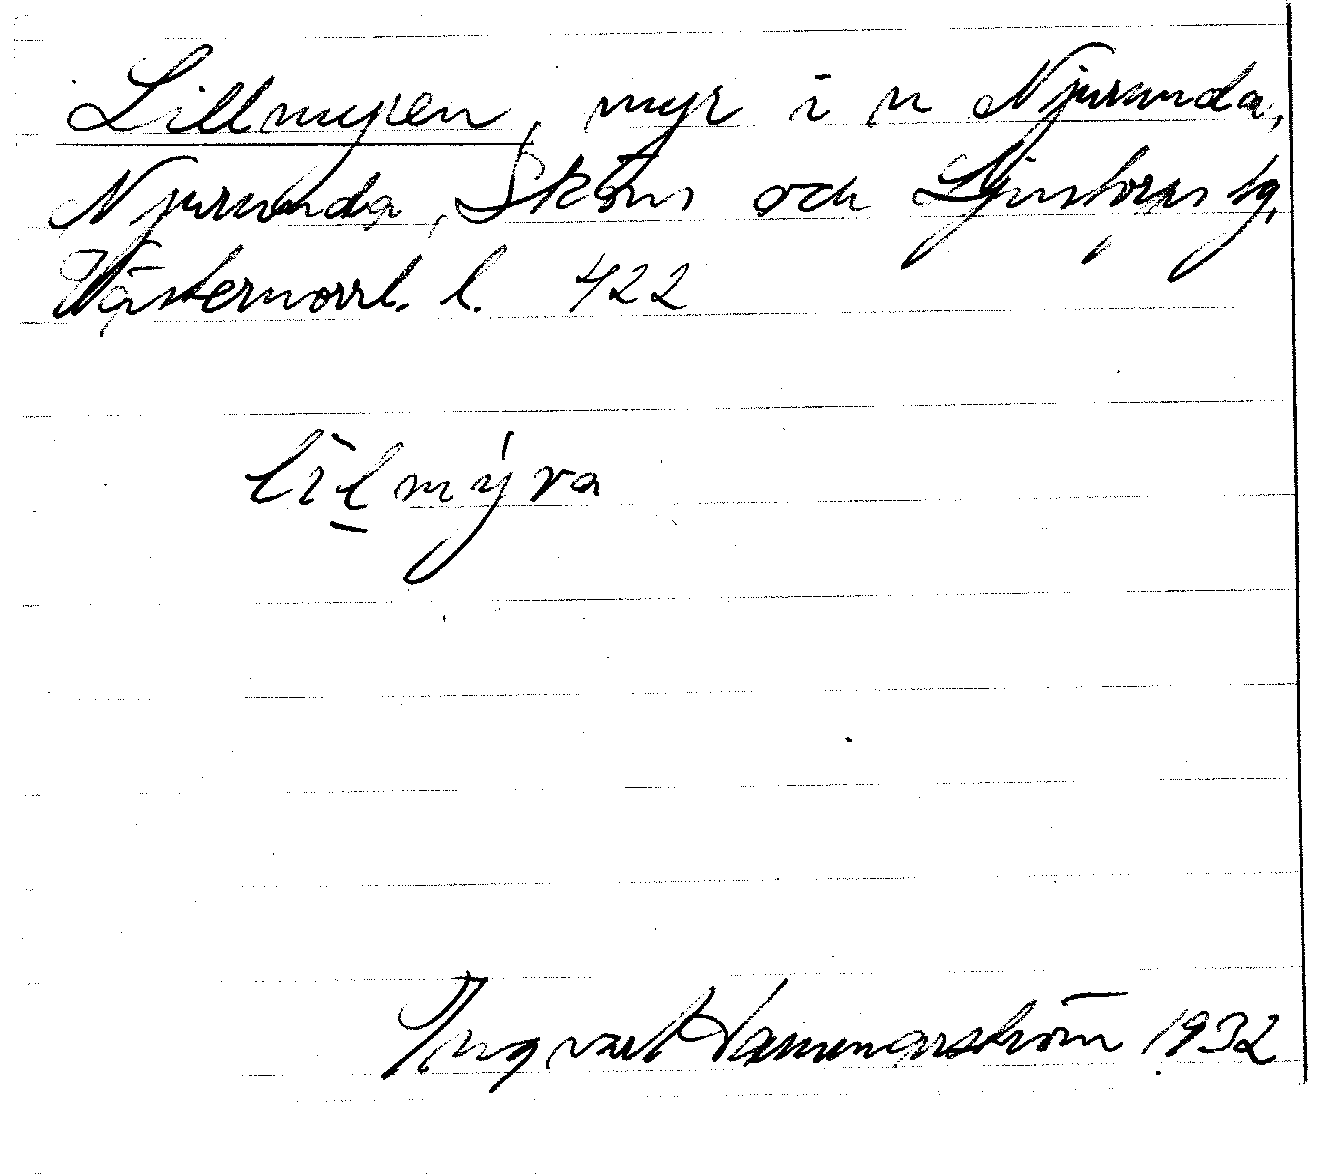 Lillmyren, myr i n Njurunda,
Njurunda, Sköns och Ljustorps tg,
Västernorrl. l. 422
lilmýra
Ingvart Hammarström 1932